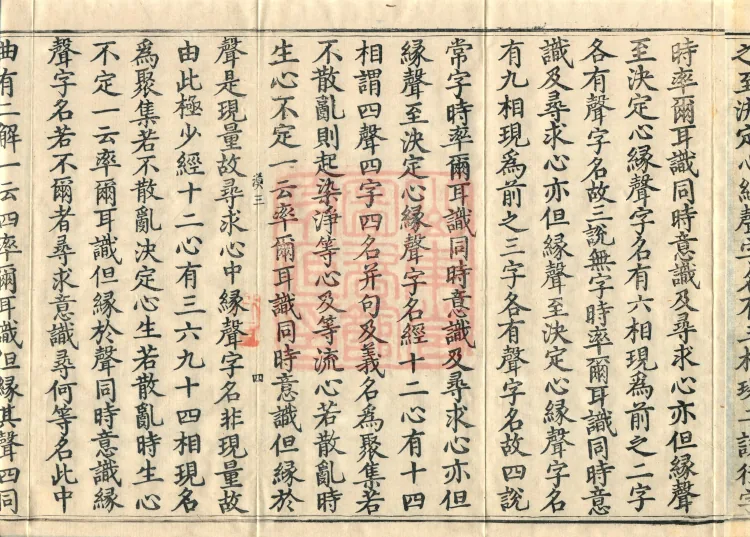 之至決定心緣聲字名
時率爾耳識同時意識及尋求心亦但緣聲
至決定心緣聲字名有六相現為前之二字
各有聲字名故三說無字時率爾耳識同時意
識及尋求心亦但緣聲至決定心緣聲字名
有九相現為前之三字各有聲字名故四說
常字時率爾耳識同時意識及尋求心亦但
緣聲至決定心緣聲字名經十二心有十四
相謂四聲四字四名并句及義名為聚集若
不散亂則起染淨等心及等流心若散亂時
生心不定一云率爾耳識同時意識但緣於
漠三
四
聲是現量故尋求心中緣聲字名非現量故
由此極少經十二心有三六九十四相現名
為聚集若不散亂決定心生若散亂時生心
不定一云率爾耳識但緣於聲同時意識緣
聲字名若不爾者尋求意識尋何等名此中
曲有二解一云四率爾耳識但緣其聲四同